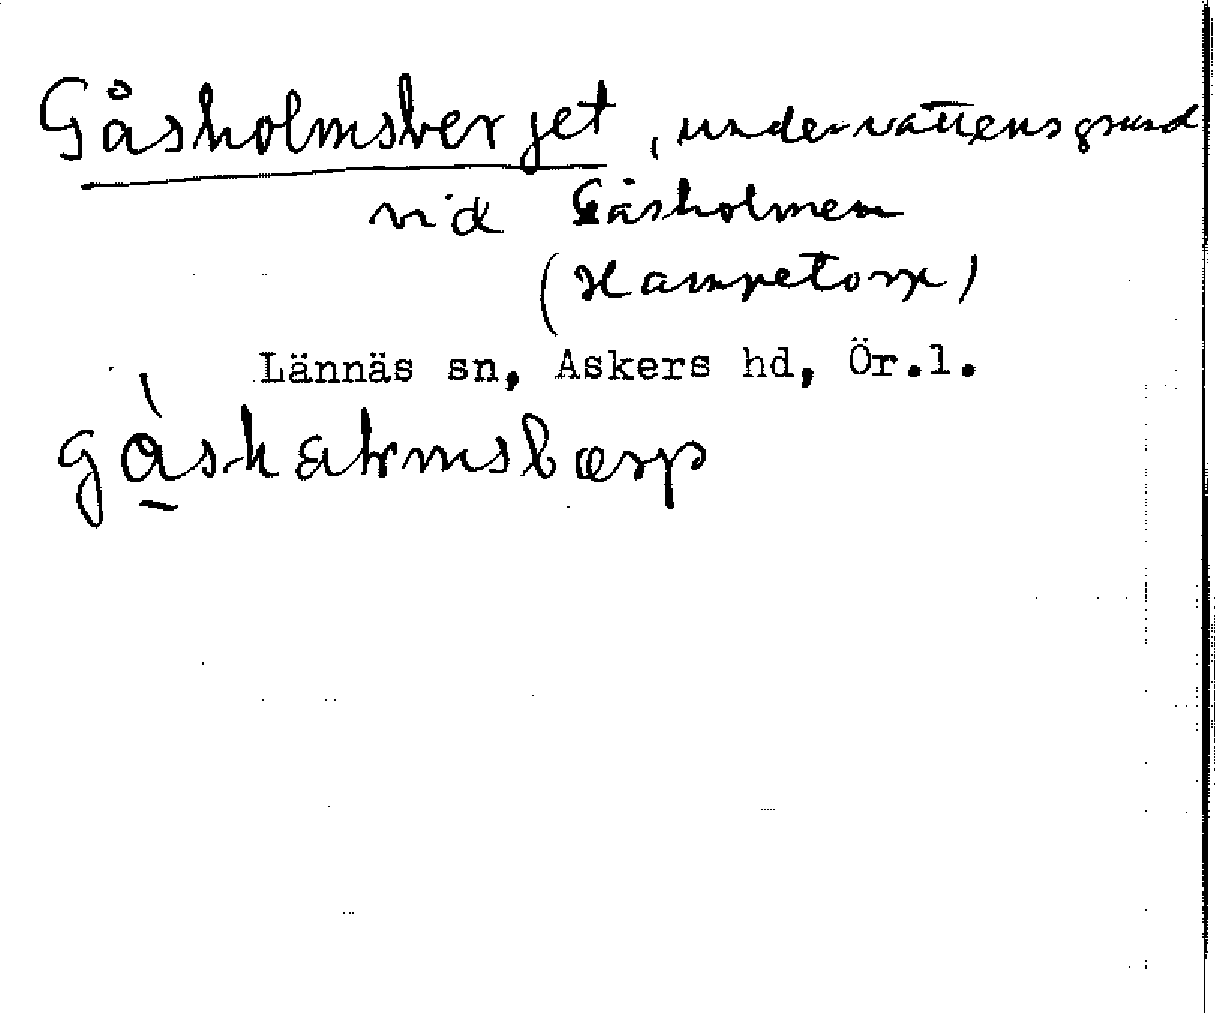 Gåsholmsberget, undervattensgrund
vid Gåsholmen
(Hampetorp)
Lännäs sn, Askers hd, Ör.l.